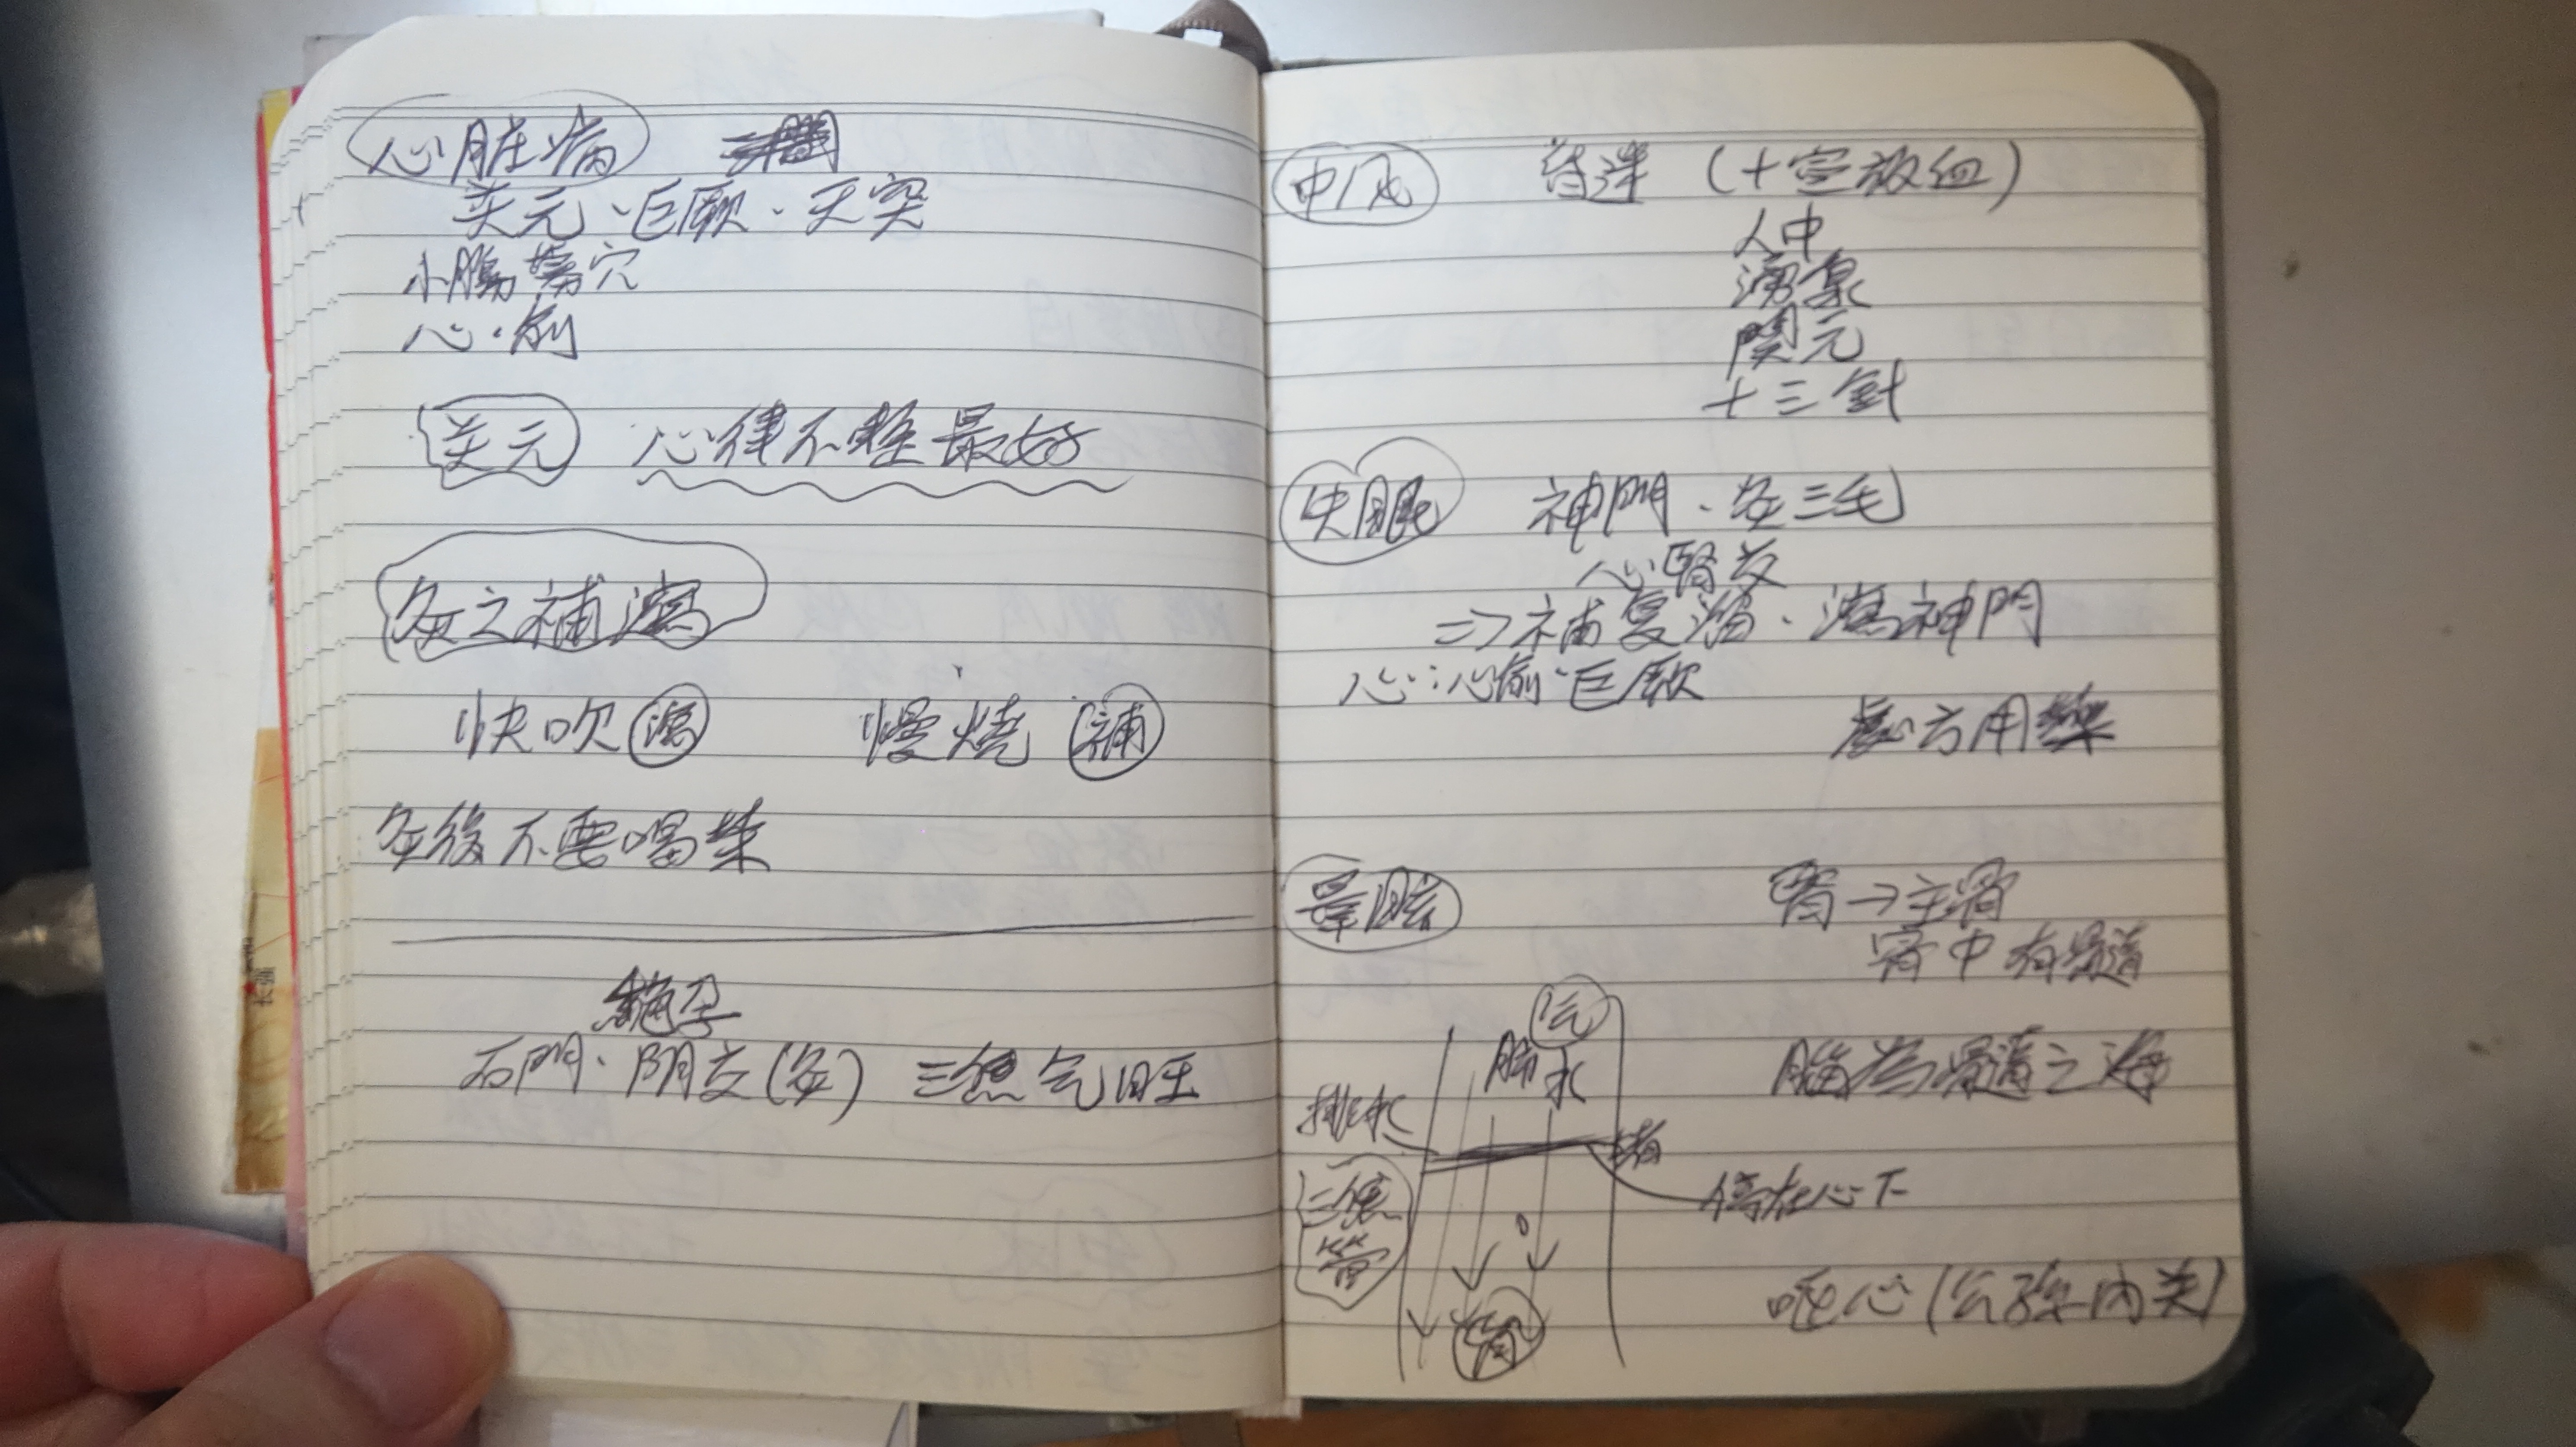 心脏病
关元、巨厥、天突
小腸募穴
心·俞
关元 心律不整最好
灸之補瀉
快吹 瀉 慢燒 補
灸後不要喝茶
絕孕
石門、阴交(灸) 三焦气旺
中风 昏迷 (十宣放血)
人中
湧泉
関元
十三針
失眠 神門、灸三毛
心腎交
=> 補复溜、瀉神門
心:心俞、巨厥
處方用藥
暈眩 腎→主骨
骨中有髓
腦为骨髓之海
气
肺 水
排水 堵
停在心下
三焦
管
腎
呕心(公孫内关)